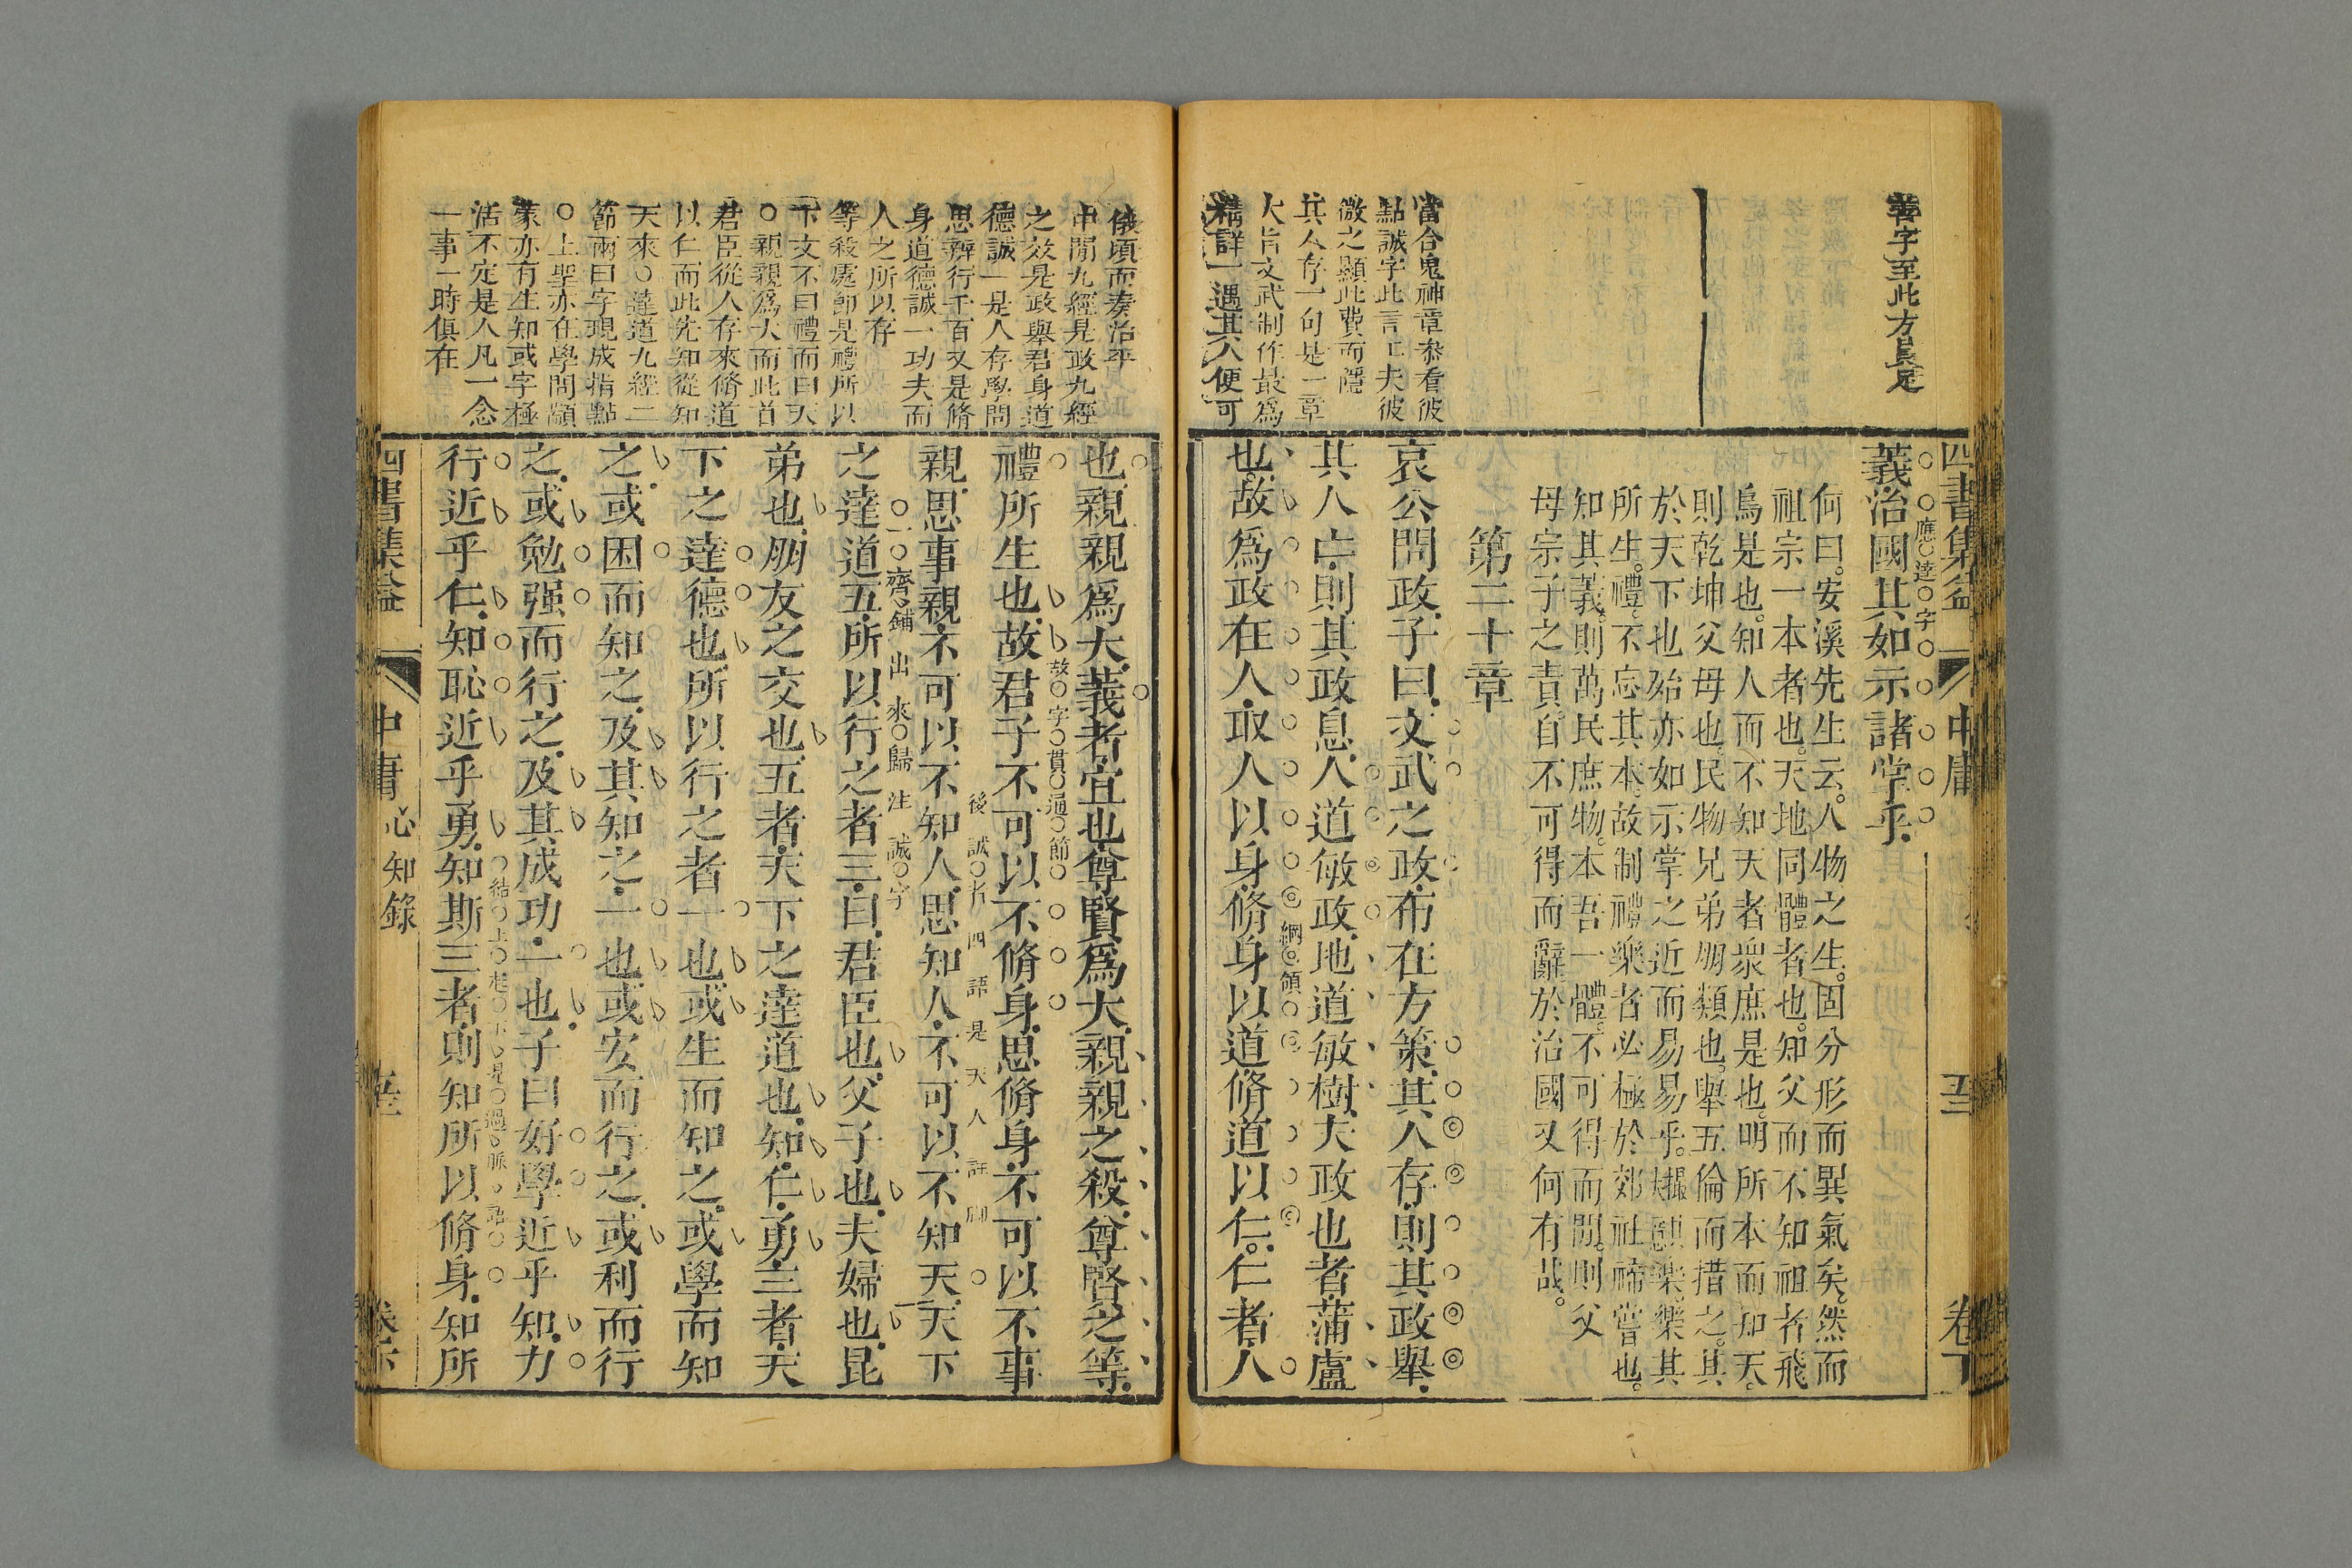 四書集益
中庸
五
卷下
善字至此方具足
義治國其如示諸掌乎
應達字
何曰安溪先生云人物之生固分形而異氣矣然而
祖宗一本者也天地同體者也知父而不知祖者飛
鳥是也知人而不知天者衆庶是也明所本而知天
則乾坤父母也民物兄弟朋類也舉五倫而措之其
於天下也殆亦如示掌之近而易易乎嬉樂樂其
所生禮不忘其本故制禮樂者必極於郊社禘嘗也
知其義則萬民庶物本吾一體不可得而間則父
母宗子之責自不可得而辭於治國又何有哉
第二十章
當合鬼神章叅看彼
點誠字此言工夫彼
微之顯此費而隱
其人存一句是一章
大旨文武制作最爲
精詳一遇其人便可
哀公問政子曰文武之政布在方策其人存則其政舉
其人亡則其政息人道敏政地道敏樹夫政也者蒲盧
綱領
也故爲政在人取人以身脩身以道脩道以仁仁者人
俄頃而奏治平
中間九經是政九經
之效是政舉君身道
德誠一是人存學問
思辨行千百又是脩
身道德誠一功夫而
人之所以存
等殺處卽是禮所以
下文不曰禮而曰天
○親親爲大而此首
君臣從人存來脩道
以仁而此先知從知
天來○達道九經二
節兩曰字現成指點
○上聖亦在學問顓
蒙亦有生知或字極
活不定是人凡一念
一事一時俱在
也親親爲大義者宜也尊賢爲大親親之殺尊賢之等
故字貫通節
禮所生也故君子不可以不脩身思脩身不可以不事
後誠者四語是天人註脚
親思事親不可以不知人思知人不可以不知天天下
一齊鋪出來歸注誠字
之達道五所以行之者三曰君臣也父子也夫婦也昆
弟也朋友之交也五者天下之達道也知仁勇三者天
下之達德也所以行之者一也或生而知之或學而知
之或困而知之及其知之一也或安而行之或利而行
之或勉强而行之及其成功一也子曰好學近乎知力
結上起下是過脈語
行近乎仁知恥近乎勇知斯三者則知所以脩身知所
四書集益
中庸
心知錄
卷下